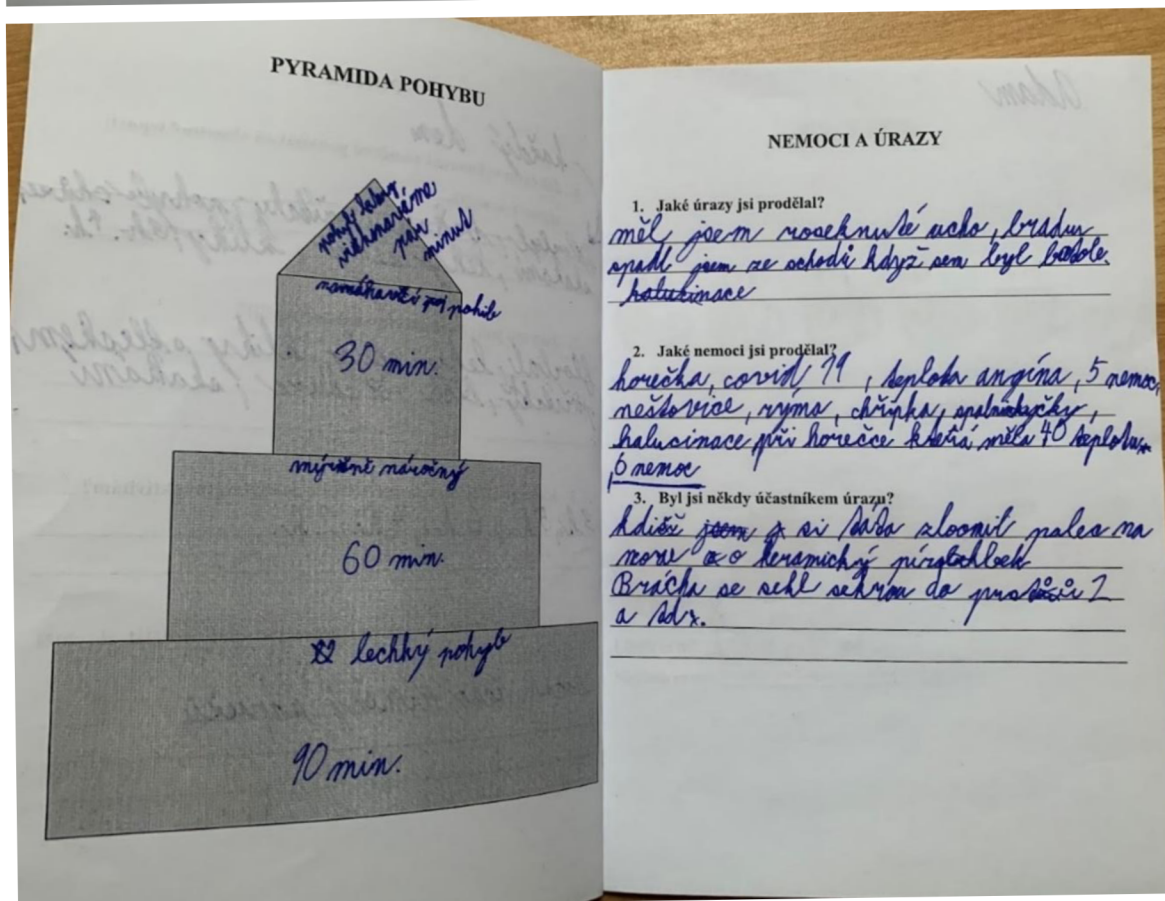 PYRAMIDA POHYBU
pohyb který
vikonaváme
pár
minut
namáhavěší poj pohib
30 min.
mýrně náročný
60 min.
lechký pohyb
90 min.
Adam
NEMOCI A ÚRAZY
1. Jaké úrazy jsi prodělal?
měl jsem roseknuté ucho, bradu
spadl jsem ze schodů když sem byl
halucinace
2. Jaké nemoci jsi prodělal?
horečka, covid 19, teplota angína, 5 nemoc,
neštovice, rýma, chřipka,
halucinace při horečce která měla 40 teplotu
6 nemoc
3. Byl jsi někdy účastníkem úrazu?
si táta zlomil palec na
o keramický
Brácha se sekl sekrou do 2
a tdx.